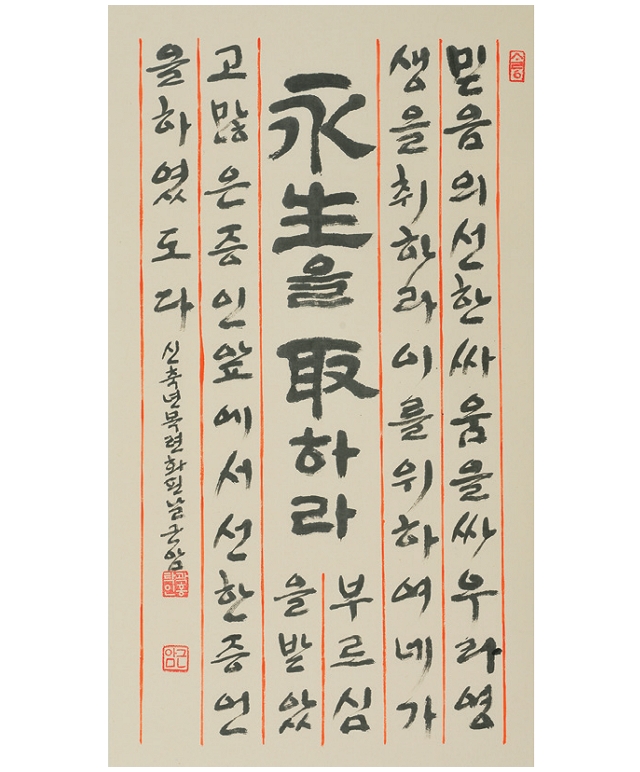 믿음의선한싸움을싸우라영
생을취하라이를위하여네가
永生을取하라
부르심
을받았
고많은증인앞에서선한증언
을하였도다
신축년목련화핀날근암
근암